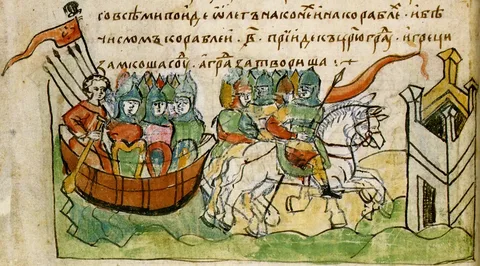 совсѣмипоиде ѡлегънаконеⷯинакораблеⷯ · ибѣ
числомъкораблеи · ҂в҃ · прїидекъцр҃югра҄ⷣ · игреци
замкошасоуⷣ · аграⷣзатвориша :~